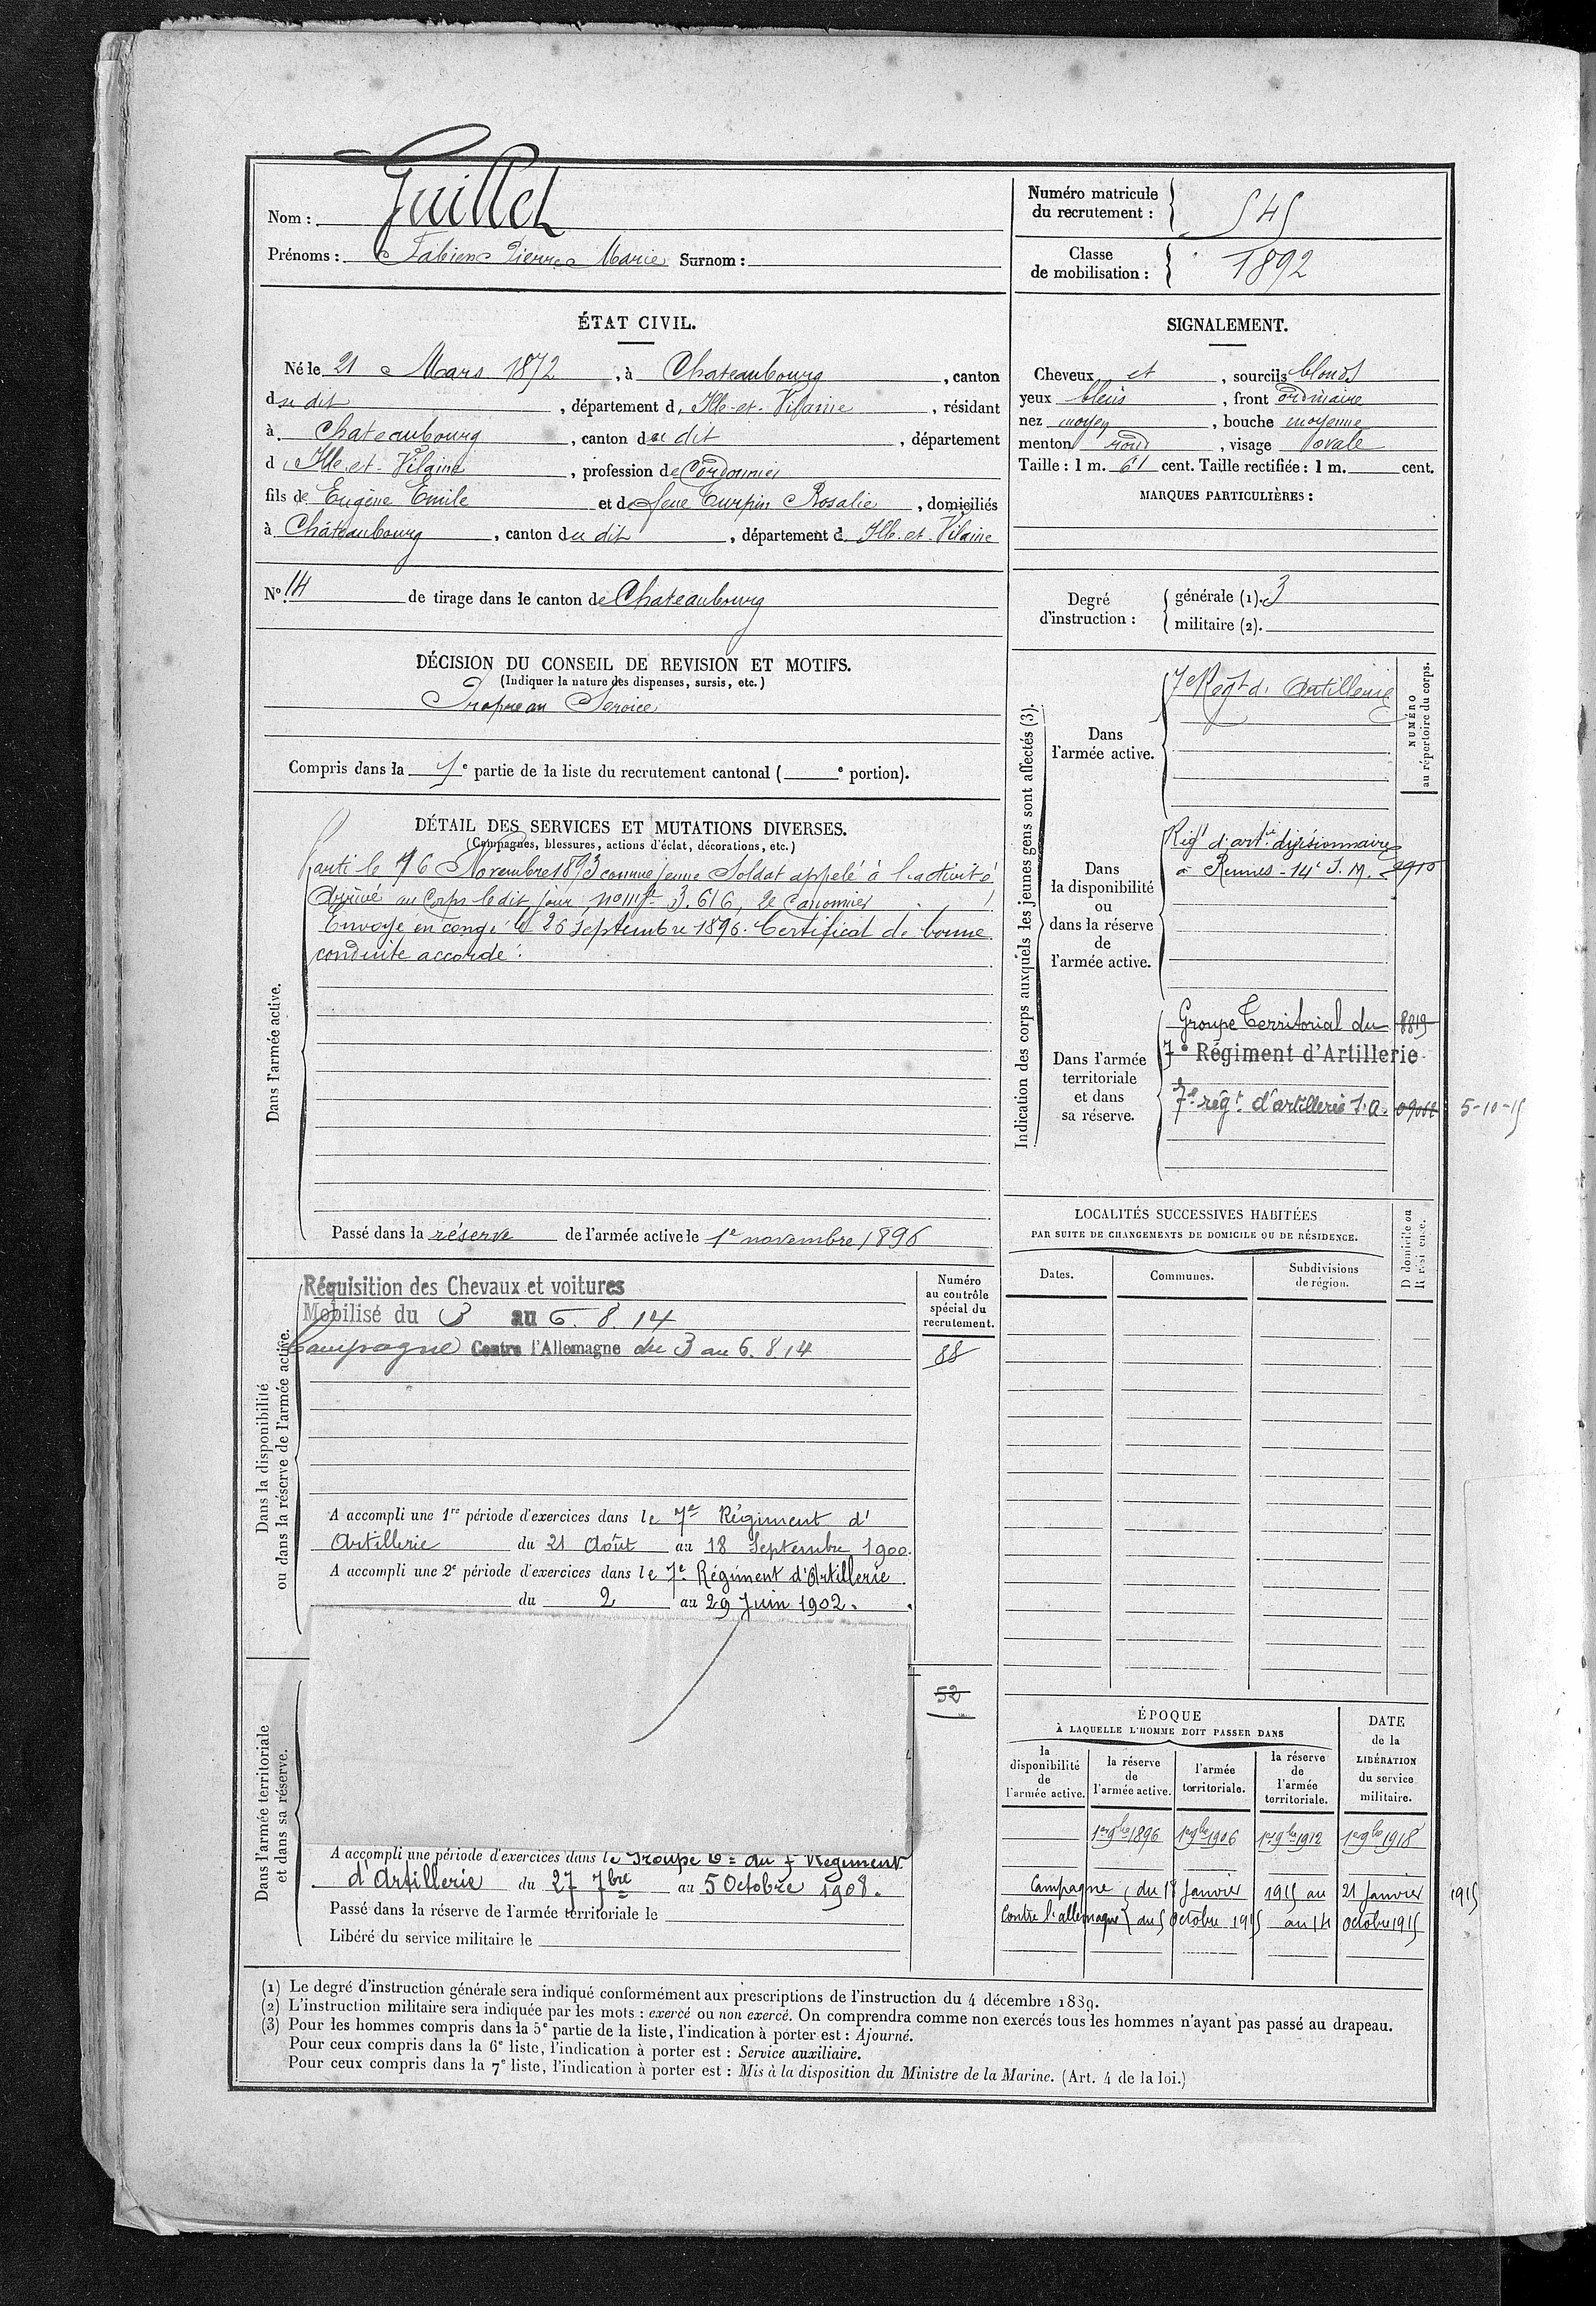 Nom : Guillet
Prénoms : Fabien Pierre Marie Surnom :
Numéro matricule
du recrutement : 545
Classe
de mobilisation : 1892
ÉTAT CIVIL.
Né le 21 Mars 1872, à Chateaubourg, canton
du dit, département d'Ille-et-Vilaine, résidant
à Chateaubourg, canton du dit, département
d'Ille-et-Vilaine, profession de Cordonnier
fils de Eugène Emile et de feue Turpin Rosalie, domiciliés
à Châteaubourg, canton du dit, département d'Ille-et-Vilaine
N° 14 de tirage dans le canton de Chateaubourg
SIGNALEMENT.
Cheveux et, sourcils blonds
yeux bleus, front ordinaire
nez moyen, bouche moyenne
menton rond, visage ovale
Taille : 1 m. 61 cent. Taille rectifiée : 1 m. cent.
MARQUES PARTICULIÈRES :
Degré
d'instruction :
générale (1). 3
militaire (2).
DÉCISION DU CONSEIL DE REVISION ET MOTIFS.
(Indiquer la nature des dispenses, sursis, etc.)
Propre au Service
Compris dans la 1e partie de la liste du recrutement cantonal ( e portion).
DÉTAIL DES SERVICES ET MUTATIONS DIVERSES.
(Campagnes, blessures, actions d'éclat, décorations, etc.)
Dans l'armée active.
Parti le 16 Novembre 1893 comme jeune Soldat appelé à l'activité
Arrivé au Corps le dit jour, no mle 3.616, 2e Canonnier
Envoyé en congé le 26 Septembre 1896. Certificat de bonne
conduite accordé.
Passé dans la réserve de l'armée active le 1e novembre 1896
Indication des corps auxquels les jeunes gens sont affectés (3).
NUMÉRO
au répertoire du corps.
Dans
l'armée active.
7e Régt d'Artillerie
Dans
la disponibilité
ou
dans la réserve
de
l'armée active.
Régt d'artie divisionnaire
à Rennes - 14e S.M.
Dans l'armée
territoriale
et dans
sa réserve.
Groupe Territorial du 8819
7e Régiment d'Artillerie
7e régt d'artillerie 5-10-15
LOCALITÉS SUCCESSIVES HABITÉES
PAR SUITE DE CHANGEMENTS DE DOMICILE OU DE RÉSIDENCE.
Dates.
Communes.
Subdivisions
de région.
D domicile ou
R résidence.
Dans la disponibilité
ou dans la réserve de l'armée active.
Réquisition des Chevaux et voitures
Mobilisé du 3 au 6. 8. 14
Campagne Contre l'Allemagne du 3 au 6. 8. 14
Numéro
au contrôle
spécial du
recrutement.
88
A accompli une 1re période d'exercices dans le 7e Régiment d'
Artillerie du 21 Août au 18 Septembre 1900.
A accompli une 2e période d'exercices dans le 7e Régiment d'Artillerie
du 2 au 29 Juin 1902.
52
Dans l'armée territoriale
et dans sa réserve.
A accompli une période d'exercices dans le Groupe du 7 Régiment
d'Artillerie du 27 7bre au 5 Octobre 1908.
Passé dans la réserve de l'armée territoriale le
Libéré du service militaire le
ÉPOQUE
À LAQUELLE L'HOMME DOIT PASSER DANS
la
disponibilité
de
l'armée active.
la réserve
de
l'armée active.
l'armée
territoriale.
la réserve
de
l'armée
territoriale.
DATE
de la
LIBÉRATION
du service
militaire.
1er 9bre 1896 1er 9bre 1906 1er 9bre 1912 1er 9bre 1918
Campagne du 18 Janvier 1915 au 21 Janvier 1915
Contre l'allemagne du 5 Octobre 1915 au 14 Octobre 1915
(1) Le degré d'instruction générale sera indiqué conformément aux prescriptions de l'instruction du 4 décembre 1889.
(2) L'instruction militaire sera indiquée par les mots : exercé ou non exercé. On comprendra comme non exercés tous les hommes n'ayant pas passé au drapeau.
(3) Pour les hommes compris dans la 5e partie de la liste, l'indication à porter est : Ajourné.
Pour ceux compris dans la 6e liste, l'indication à porter est : Service auxiliaire.
Pour ceux compris dans la 7e liste, l'indication à porter est : Mis à la disposition du Ministre de la Marine. (Art. 4 de la loi.)